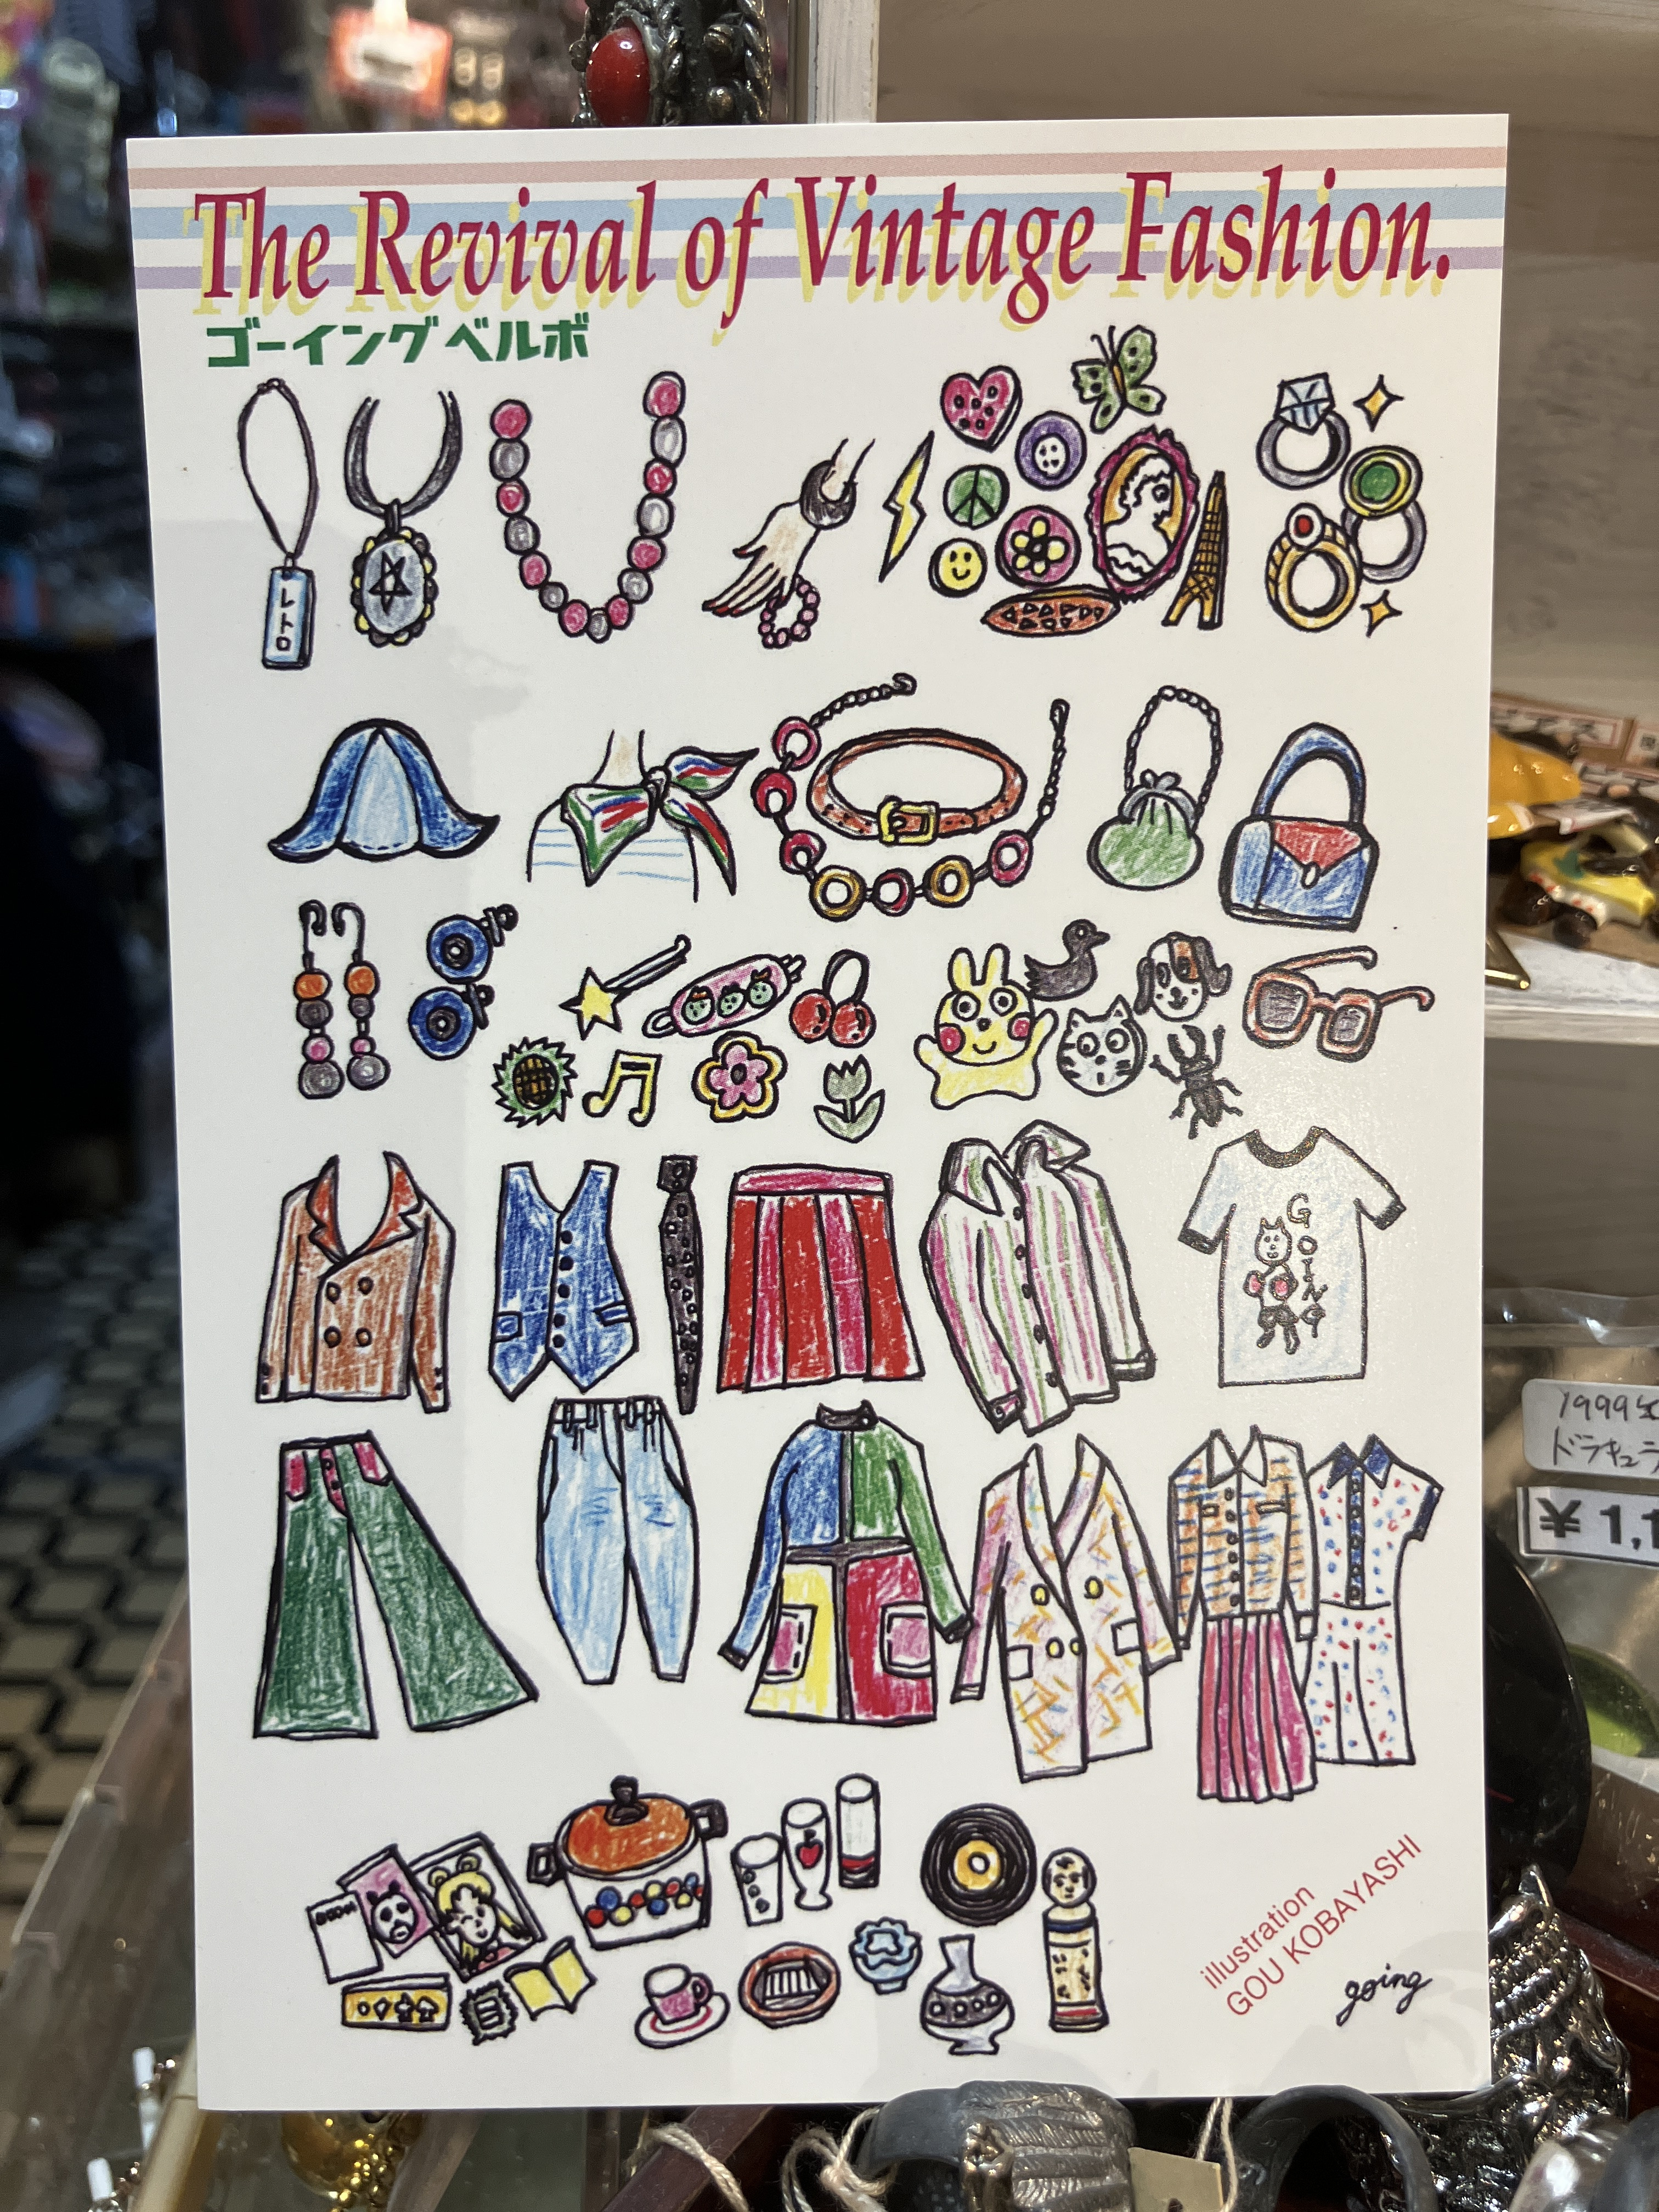 The Revival of Vintage Fashion.
ゴーイングベルボ
レトロ
GOING
illustration
GOU KOBAYASHI
going
1999
ドラキュラ
¥1,1